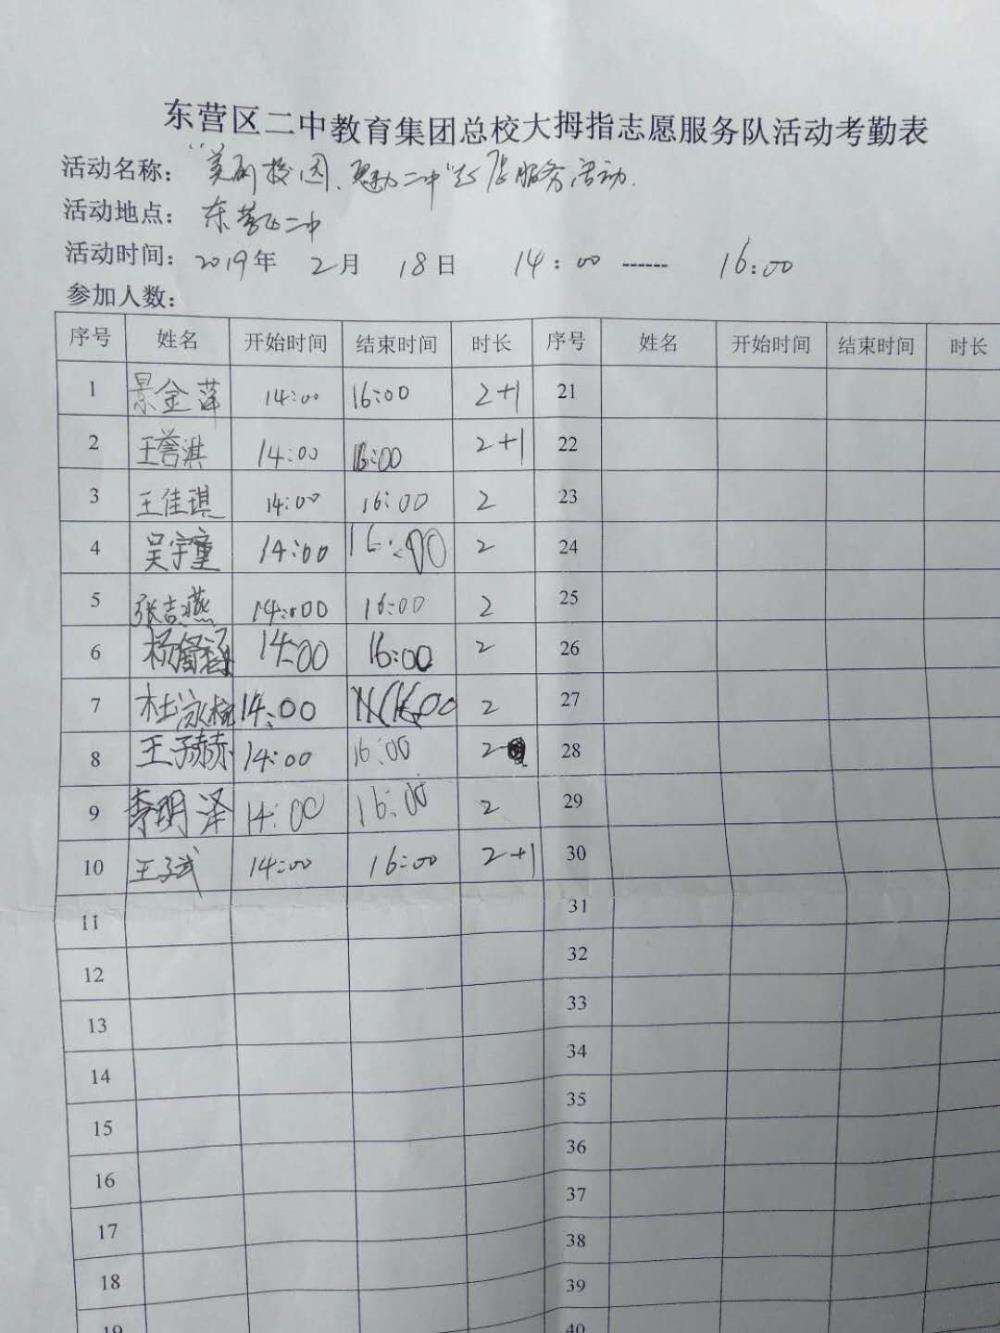 东营区二中教育集团总校大拇指志愿服务队活动考勤表
活动名称: "美丽校园、魅力二中"志愿服务活动.
活动地点: 东营区二中
活动时间: 2019年 2月 18日 14:00 ------ 16:00
参加人数:
序号 姓名 开始时间 结束时间 时长 序号 姓名 开始时间 结束时间 时长
1 景金萍 14:00 16:00 2+1 21
2 王誉淇 14:00 16:00 2+1 22
3 王佳琪 14:00 16:00 2 23
4 吴宇童 14:00 16:00 2 24
5 张吉燕 14:00 16:00 2 25
6 杨馨涵 14:00 16:00 2 26
7 杜泳 14:00 16:00 2 27
8 王子赫 14:00 16:00 2 28
9 李明泽 14:00 16:00 2 29
10 王子斌 14:00 16:00 2+1 30
11 31
12 32
13 33
14 34
15 35
16 36
17 37
18 38
19 39
40